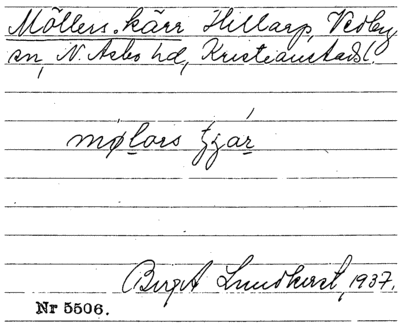 Möllers kärr Hillarp, Vedby
sn, N. Åsbo hd, Kristianstads l.
mølors tjár
Birgit Lundkvist, 1937.
Nr 5506.